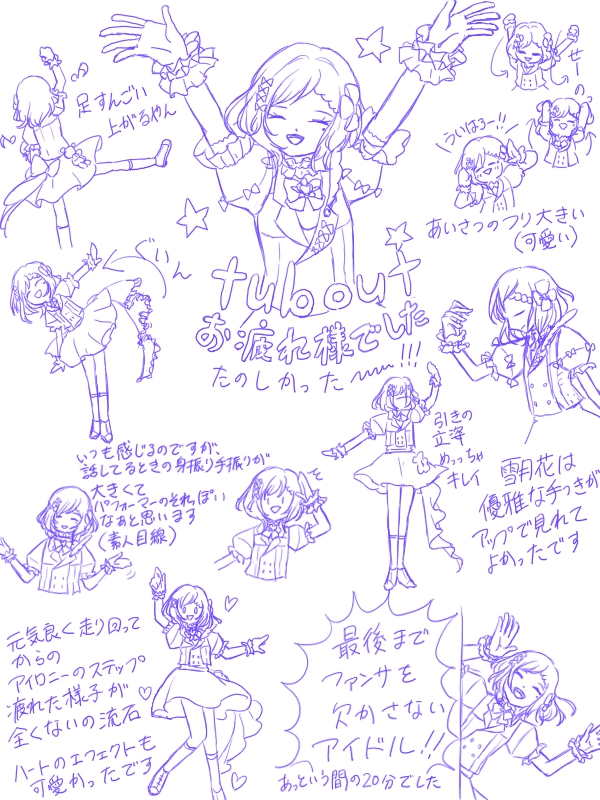 足すんごい
上がるやん
せーの
ういはろー!!
あいさつのフリ大きい
(可愛い)
ぐいん
tubout
お疲れ様でした
たのしかった〜!!!
いつも感じるのですが、
話してるときの身振り手振りが
大きくて
パフォーマーのそれっぽい
なぁと思います
(素人目線)
引きの
立姿
めっちゃ
キレイ
雪月花は
優雅な手つきが
アップで見れて
よかったです
元気良く走り回って
からの
アイロニーのステップ
疲れた様子が
全くないの流石
ハートのエフェクトも
可愛かったです
最後まで
ファンサを
欠かさない
アイドル!!
あっという間の20分でした